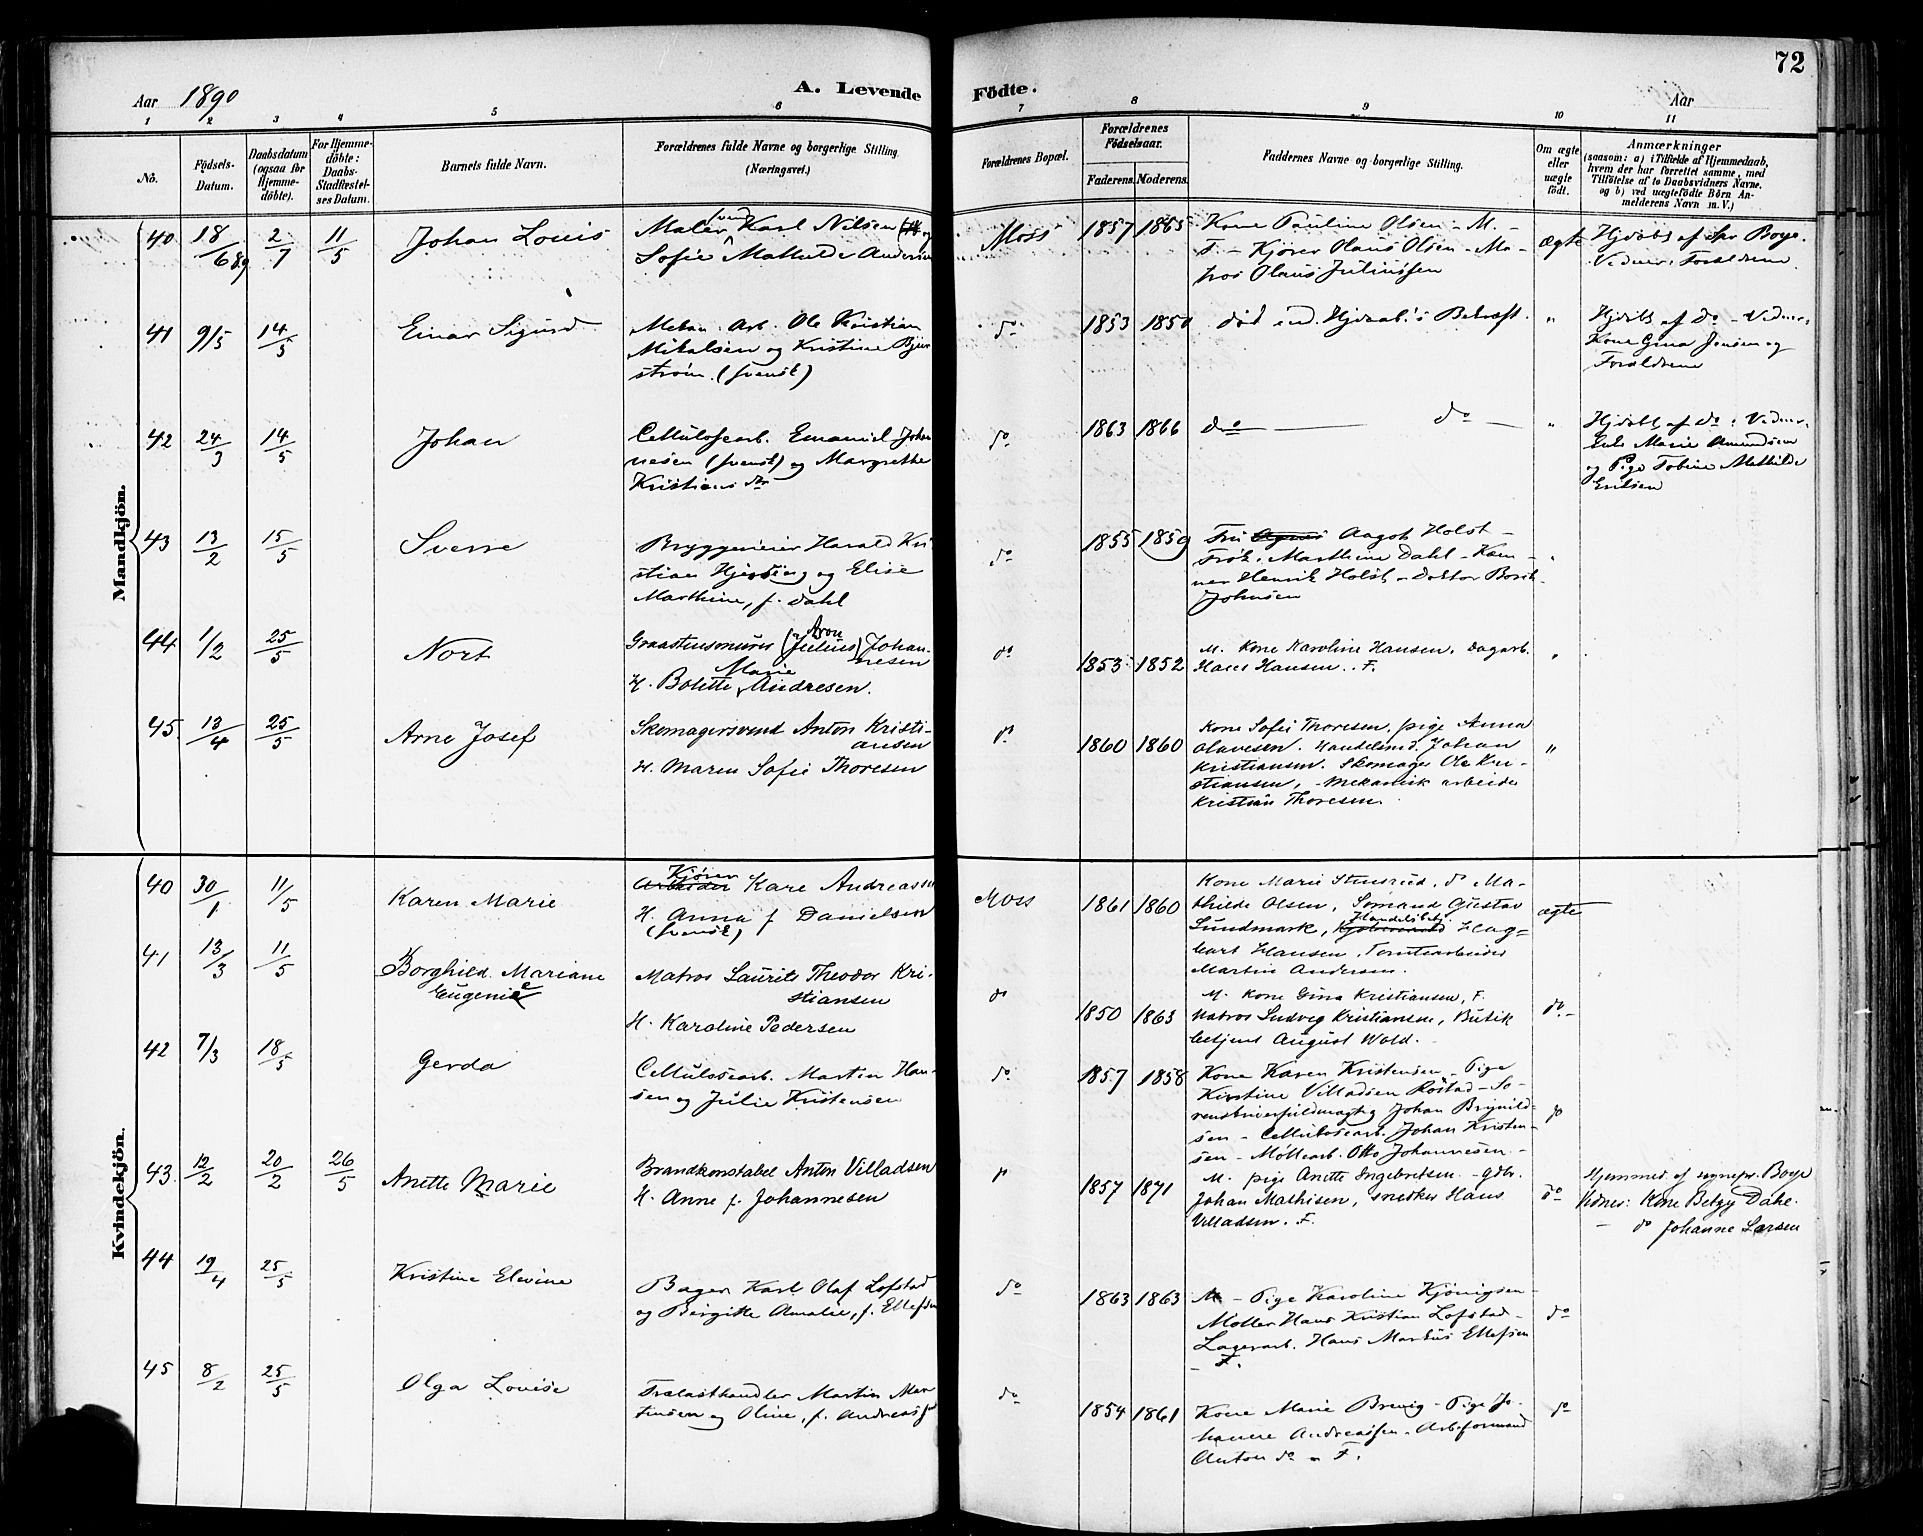 72
Aar 1890
A. Levende Födte.
Aar
1 2 3 4 5 6 7 8 9 10 11
No.
Födsels-
Datum.
Daabsdatum
(ogsaa for
Hjemme-
döbte).
For Hjemme-
döbte:
Daabs-
Stadfæstel-
ses Datum.
Barnets fulde Navn.
Forældrenes fulde Navne og borgerlige Stilling.
(Næringsvei.)
Forældrenes Bopæl.
Forældrenes
Födselsaar.
Faderens. Moderens.
Faddernes Navne og borgerlige Stilling.
Om ægte
eller
uægte
födt.
Anmærkninger
(saasom: a) i Tilfælde af Hjemmedaab,
hvem der har forrettet samme, med
Tilföielse af to Daabsvidners Navne,
og b) ved uægtefödte Börn An-
melderens Navn m. V.)
Mandkjön.
40 18/6 89 2/7 11/5 Johan Louis
Maler svend Karl Nilsen og
Sofie Mathilde Andersen
Moss 1857 1865
Kone Pauline Olsen - M. -
F. - Kjører Olaus Olsen - Ma-
tros Olaus Juliussen
ægte
Hjdøbt af Spr Boye.
Vidner: Forældrene
41 9/5 14/5 Einar Sigurd
Mekan. Arb. Ole Kristian
Mikalsen og Kristine Bjur
strøm. (svensk)
do 1853 1850
død ind. Hjdaab's Bekræft. "
Hjdøbt af do - Vidner,
Kone Gina Jensen og
Forældrene
42 24/3 14/5 Johan
Cellulosearb. Emanuel Johan
nesen (svensk) og Margrethe
Kristians dtr
do 1863 1866 do — do — "
Hjdøbt af do: Vidner,
Enke Marie Amundsen
og Pige Tobine Mathilde
Erilsen
43 13/2 15/5 Sverre
Bryggerieier Harald Kri
stian Hjersing og Elise
Marthine, f. Dahl
do 1855 1859
Fru Aagot Holst -
Frøk. Marthine Dahl - Kam-
ner Henrik Holst - Doktor Borik
Johnsen
"
44 1/2 25/5 Nort
Graastensmurer (Julius) Aron Johan-
nesen
H. Bolette Marie Andresen.
do 1853 1852
M. Kone Karoline Hansen, Dagarb.
Hans Hansen. F.
"
45. 13/4 25/5 Arne Josef
Skomagersvend Anton Kristi-
ansen
H. Maren Sofie Thoresen
do 1860 1860
Kone Sofie Thoresen, pige Anna
Olavesen. Handelsmd. Johan
Kristiansen. Skomager Ole Kri-
stiansen, - Mekanisk arbeider
Kristian Thoresen.
"
Kvindekjön.
40 30/1 11/5 Karen Marie
Arbeider Kjører Karl Andreassen
H. Anna f. Danielsen
(svensk)
Moss 1861 1860
Kone Marie Stensrud, do Ma-
thilde Olsen, Sømand Gustav
Sundmark, Handelsbetj. Hag-
bart Hansen, Tomtearbeider
Martin Andersen.
ægte
41 13/3 11/5 Borghild Mariane
Eugenie
Matros Laurits Theodor Kri-
stiansen
H. Karoline Pedersen
do 1850 1863
M. Kone Gina Kristiansen, F.
Matros Ludvig Kristiansen, Butik
betjent August Wold.
do -
42 7/3 18/5 Gerda
Cellulosearb. Martin Han-
sen og Julie Kristensen
do 1857 1858
Kone Karen Kristensen - Pige
Kirstine Villadsen Røstad - So-
renskriverfuldmægtig Johan Brynild-
sen - Cellulosearb. Johan Kristen-
sen - Møllearb. Otto Johannesen -
do
43. 12/2 20/2 26/5 Anette Marie
Brandkonstabel Anton Villadsen
H. Anne f. Johannesen
do 1857 1871
M. pige Anette Ingebretsen - gdbr.
Johan Mathisen, snedker Hans
Villadsen. F.
do
Hjemmed. af sognepr. Boye
Vidner: Kone Betzy Dahl.
— do Johanne Larsen
44 19/4 25/5 Kristine Elevine
Bager Karl Olaf Lofstad
og Birgitte Amalie, f. Ellefsen
do 1863 1863
M - Pige Karoline Kjønigsen -
Møller Hans Kristian Lofstad -
Lagerarb. Hans Markus Ellefsen
- F.
do
45 8/2 25/5 Olga Louise
Trælasthandler Martin Mar
tinsen og Oline, f. Andreassen
do 1854 1861
Kone Marie Brevig - Pige Jo-
hanne Andreassen - Arb.formand
Anton do - F.
do